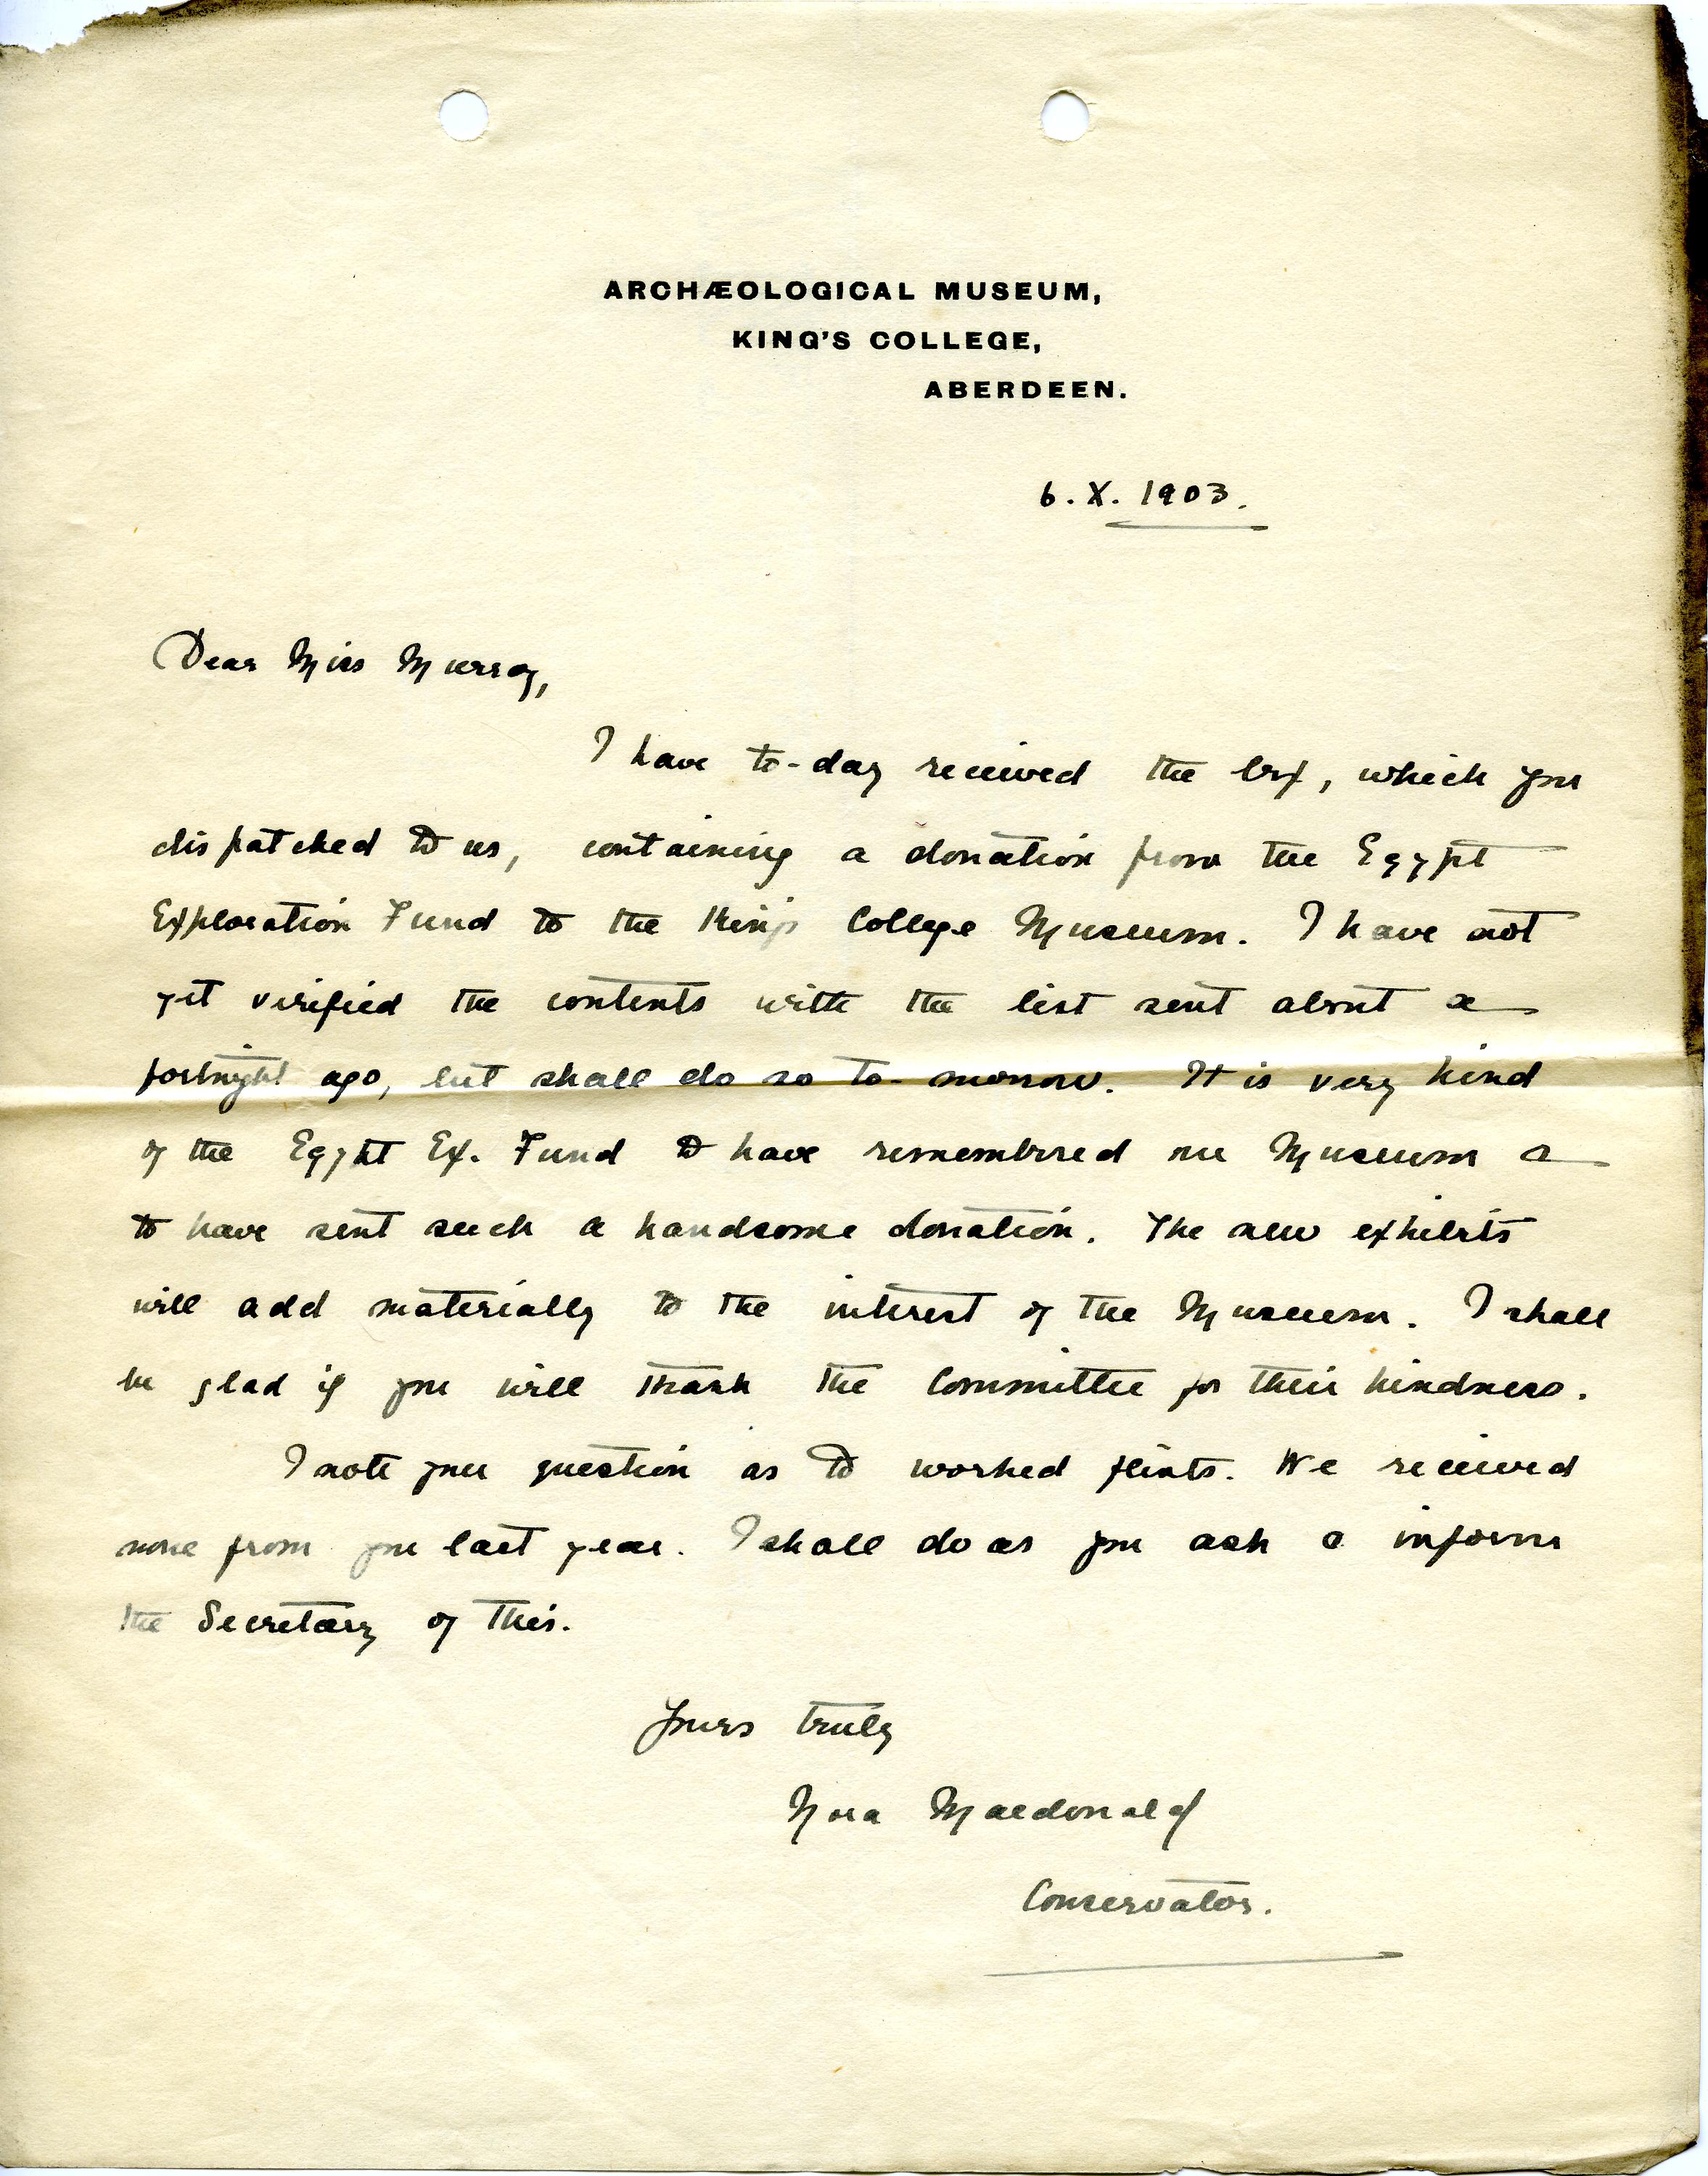 ARCHÆOLOGICAL MUSEUM,
KING'S COLLEGE,
ABERDEEN.
6. X. 1903.
Dear Miss Murray,
I have to-day received the box, which you
dispatched to us, containing a donation from the Egypt
Exploration Fund to the King's College Museum. I have not
yet verified the contents with the list sent about a
fortnight ago, but shall do so to-morrow. It is very kind
of the Egypt Ex. Fund to have remembered our Museum &
to have sent such a handsome donation. The new exhibits
will add materially to the interest of the Museum. I shall
be glad if you will thank the Committee for their kindness.
I note your question as to worked flints. We received
none from you last year. I shall do as you ask & inform
the Secretary of this.
Yours truly
Nora Macdonald
Conservator.